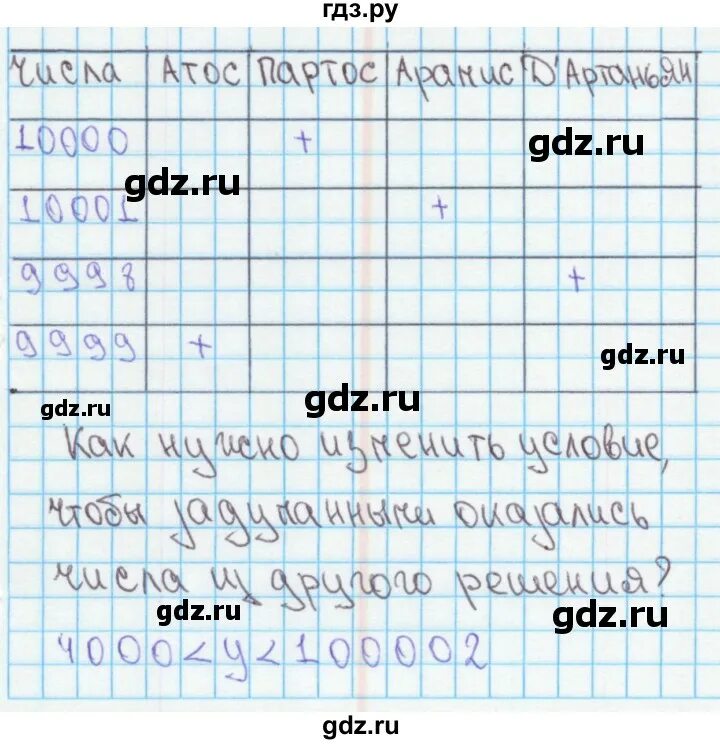 гдз.ру
Числа Атос Партос Арамис Д'Артаньян
10000 +
gdz.ru
gdz.ru
10001 +
9998 +
9999 +
gdz.ru
gdz.ru
gdz.ru
Как нужно изменить условие,
чтобы задуманными оказались
числа из другого решения?
gdz.ru
gdz.ru
4000 < y < 100002
gdz.ru